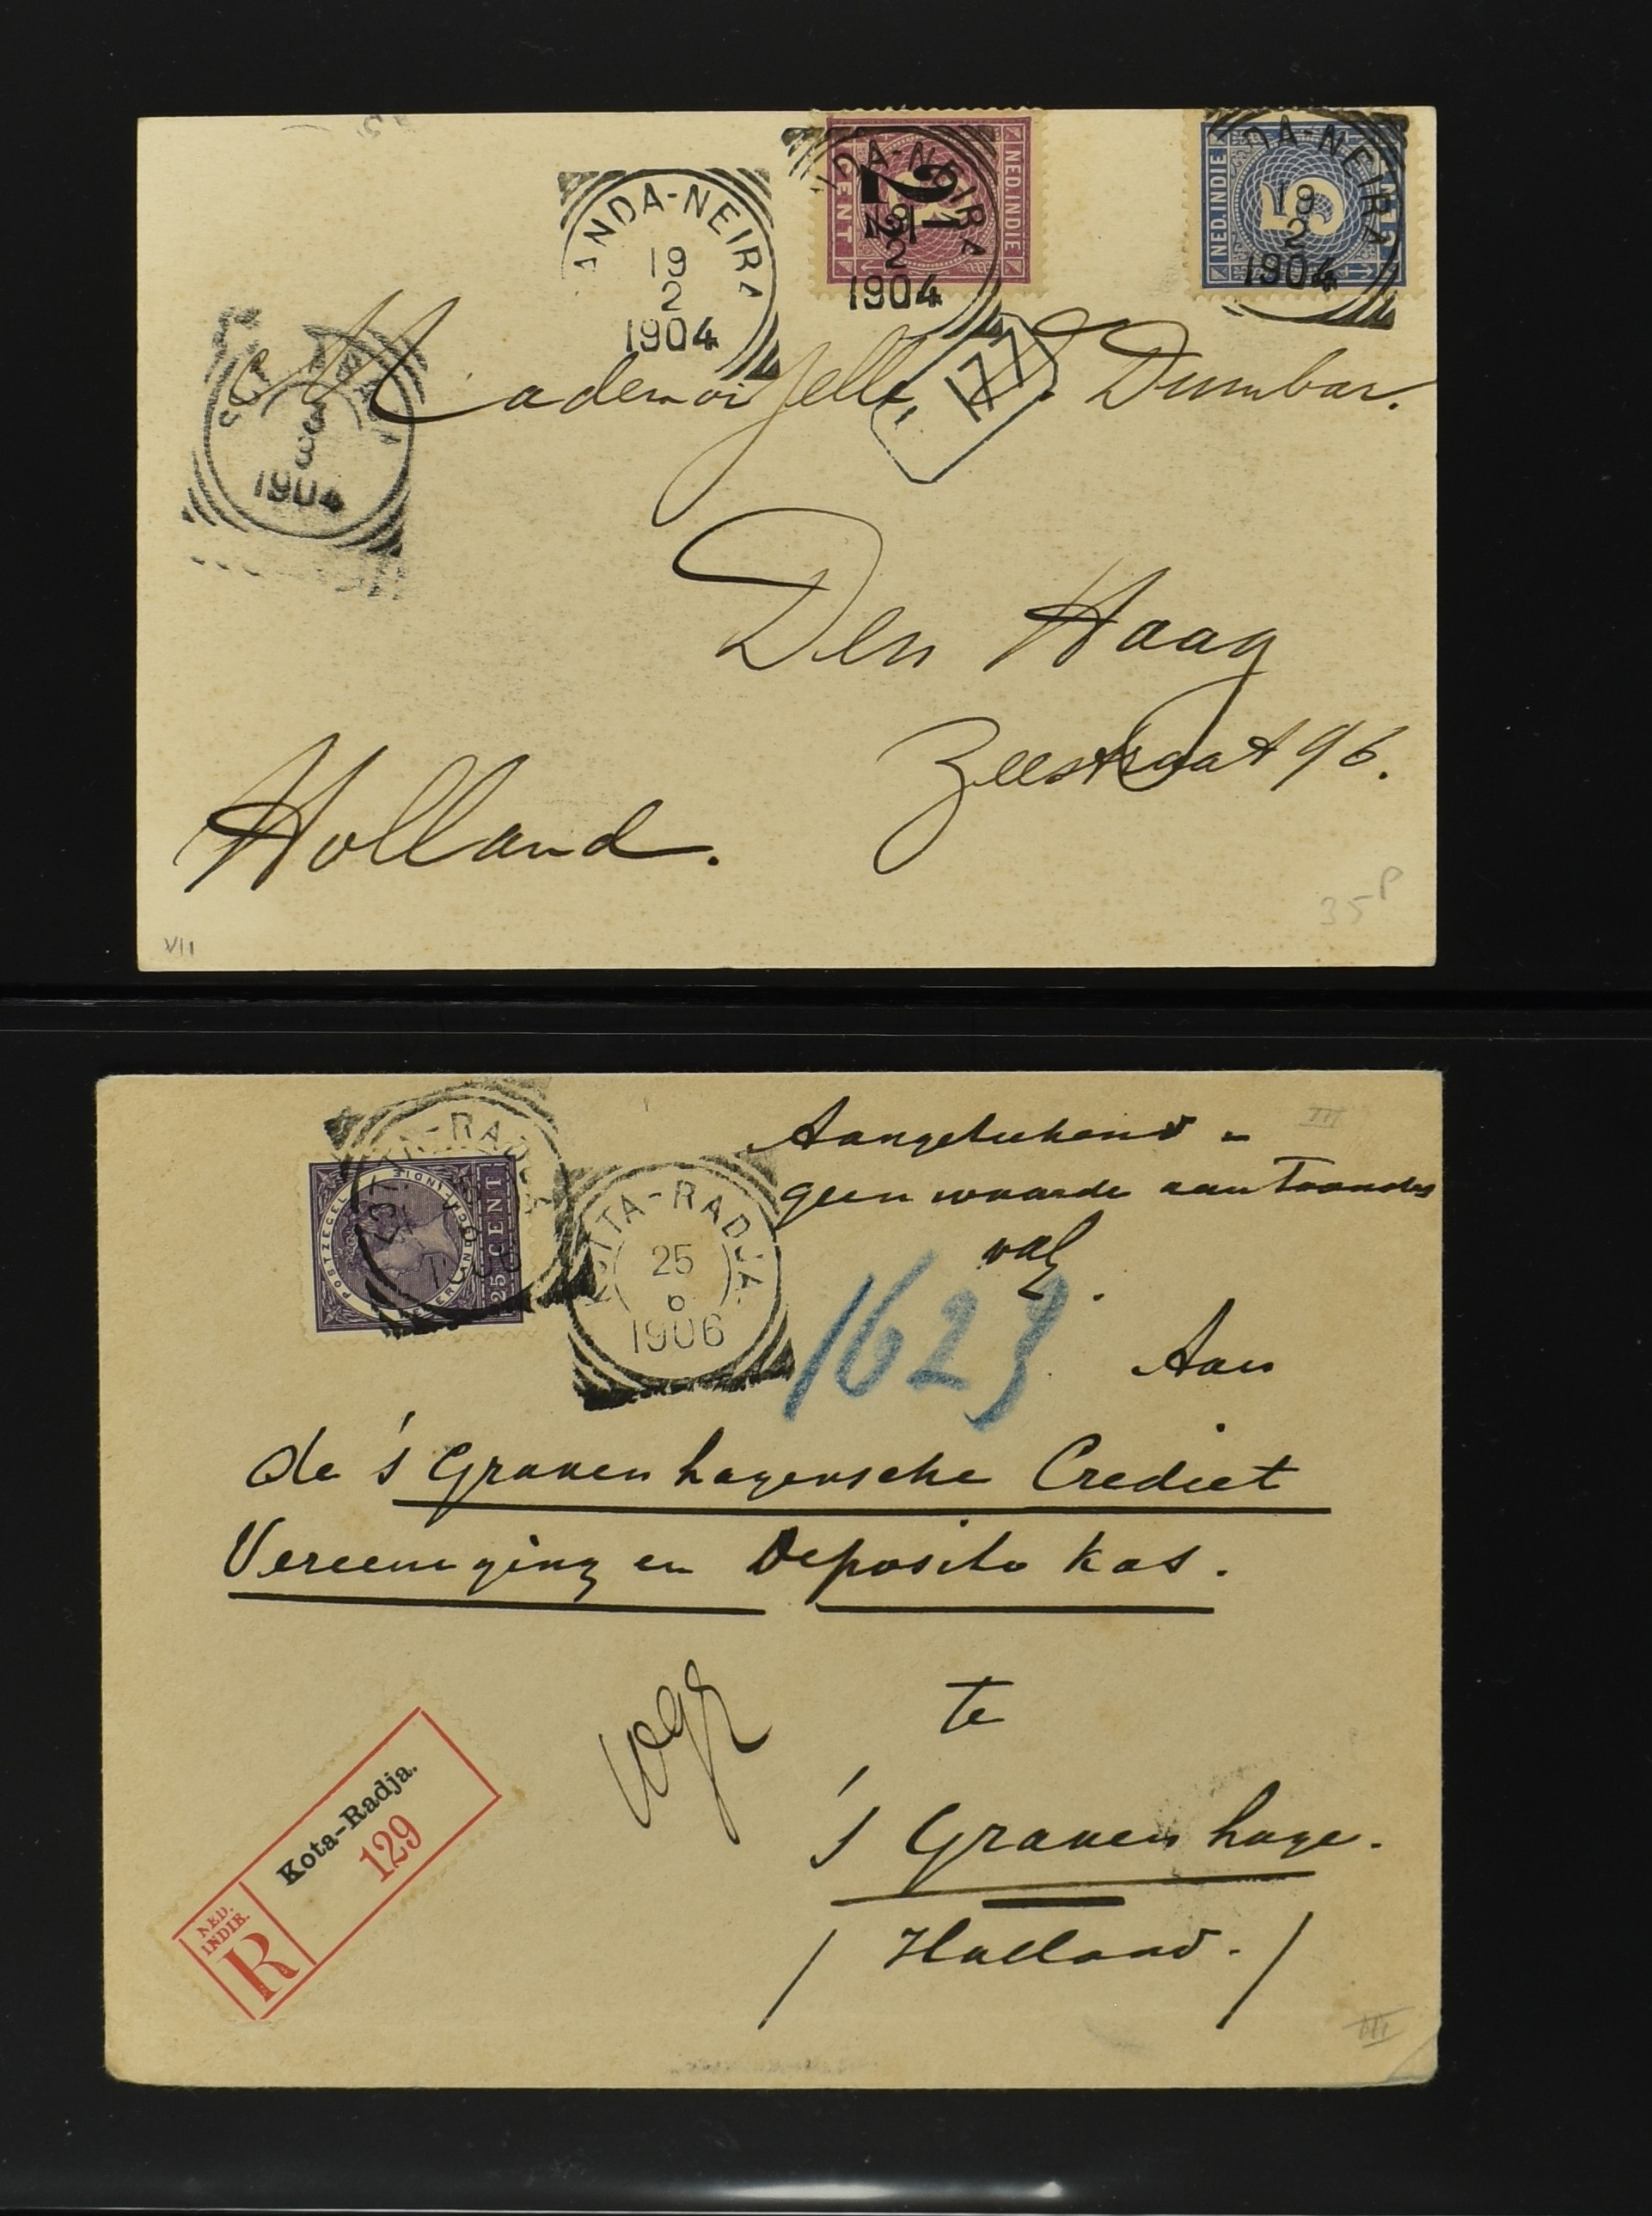 ANDA-NEIRA
19
2
1904
DA-NEIRA
19
2
1904
2½
CENT
NED. INDIE
DA-NEIRA
19
2
1904
NED. INDIE
5
CENT
3
1904
177
Mademoiselle Dumbar.
Den Haag
Zeestraat 96.
Holland.
35
VII
POSTZEGEL
25 CENT
TTA-RADJA
25
6
1906
Aangetekend -
geen waarde
III
1623
Aan
de 's Gravenhagensche Crediet
Vereeniging en Deposito kas.
te
's Gravenhage.
/ Holland. /
NED. INDIË.
R
Kota-Radja.
129
III